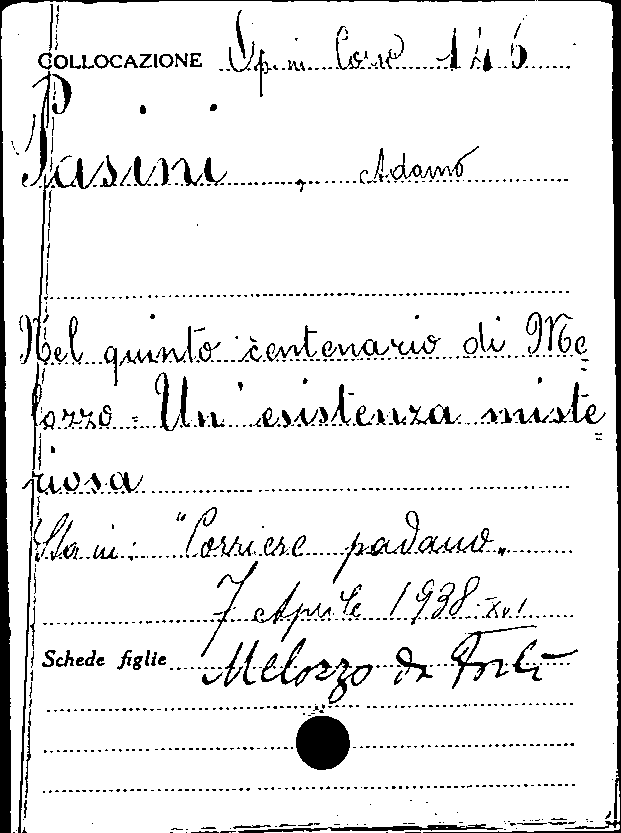 COLLOCAZIONE Opini Cose 146
P
Pasini, Adamo
Nel quinto centenario di Me=
lozzo = Un' esistenza miste=
riosa
Sta in: "Corriere padano„
7 Aprile 1938.XVI
Schede figlie Melozzo da Forlì